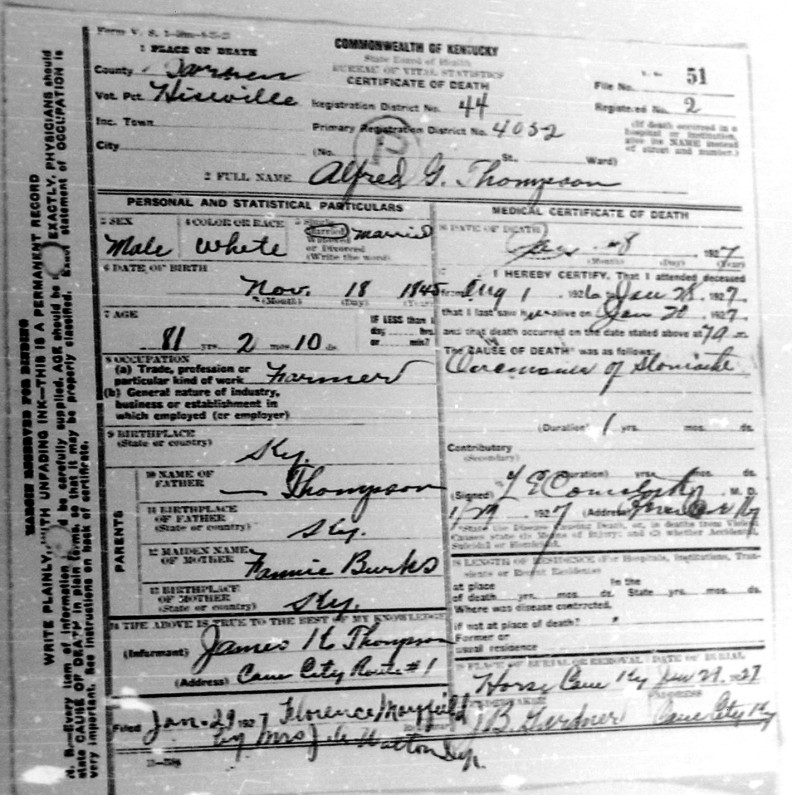 Form V. S.
1 PLACE OF DEATH
COMMONWEALTH OF KENTUCKY
State Board of Health
BUREAU OF VITAL STATISTICS
CERTIFICATE OF DEATH
51
County
File No.
Vot. Pct. Hiseville
Registration District No. 44
Registered No. 2
Inc. Town
Primary Registration District No. 4052
(If death occurred in a hospital or institution, give its NAME instead of street and number.)
City
(No. St., Ward)
2 FULL NAME Alfred G. Thompson
PERSONAL AND STATISTICAL PARTICULARS
3 SEX
Male
4 COLOR OR RACE
White
5 Single
Married
Widowed
or Divorced
(Write the word)
Married
6 DATE OF BIRTH
Nov. 18 1845
(Month) (Day) (Year)
7 AGE
81 yrs. 2 mos. 10 ds.
IF LESS than 1
day, hrs.
or min?
8 OCCUPATION
(a) Trade, profession or
particular kind of work Farmer
(b) General nature of industry,
business or establishment in
which employed (or employer)
9 BIRTHPLACE
(State or country)
Ky.
PARENTS
10 NAME OF
FATHER
Thompson
11 BIRTHPLACE
OF FATHER
(State or country)
Ky.
12 MAIDEN NAME
OF MOTHER
Fannie Burks
13 BIRTHPLACE
OF MOTHER
(State or country)
Ky.
14 THE ABOVE IS TRUE TO THE BEST OF MY KNOWLEDGE
(Informant) James H. Thompson
(Address) Cave City Route #1
Filed Jan. 29 1927 Florence Mayfield
by Mrs J. Walton
MEDICAL CERTIFICATE OF DEATH
16 DATE OF DEATH
Jan 28 1927
(Month) (Day) (Year)
I HEREBY CERTIFY, That I attended deceased
from Aug 1 1926 to Jan 28, 1927,
that I last saw h alive on Jan 1927,
and that death occurred on the date stated above at m.
The CAUSE OF DEATH was as follows:
of Stomach
(Duration) 1 yrs. mos. ds.
Contributory
(Secondary)
(Duration) yrs. mos. ds.
(Signed) M. D.
1927 (Address) Ky
State the Disease Causing Death, or, in deaths from Violent
Causes state (1) Means of Injury; and (2) whether Accidental,
Suicidal or Homicidal.
18 LENGTH OF RESIDENCE (For Hospitals, Institutions, Transients or Recent Residents)
at place In the
of death yrs. mos. ds. State yrs. mos. ds.
Where was disease contracted,
if not at place of death?
Former or
usual residence
PLACE OF BURIAL OR REMOVAL DATE OF BURIAL
Horse Cave Ky Jan 29 1927
ADDRESS
J B Gardner Cave City Ky
MARGIN RESERVED FOR BINDING
WRITE PLAINLY, WITH UNFADING INK—THIS IS A PERMANENT RECORD
N. B.—Every item of information should be carefully supplied. AGE should be EXACTLY. PHYSICIANS should
state CAUSE OF DEATH in plain terms, so that it may be properly classified. Exact statement of OCCUPATION is
very important. See instructions on back of certificate.